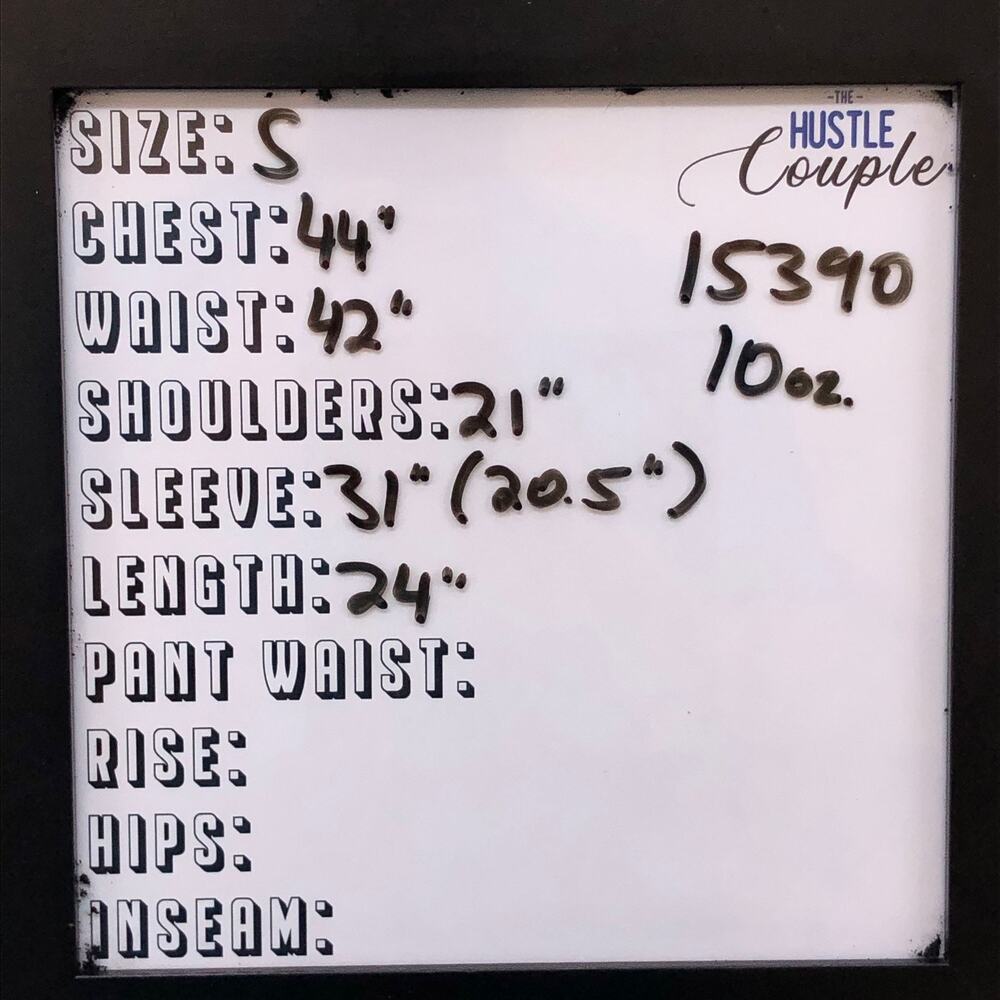 SIZE: S
CHEST: 44"
WAIST: 42"
SHOULDERS: 21"
SLEEVE: 31" (20.5")
LENGTH: 24"
PANT WAIST:
RISE:
HIPS:
INSEAM:
-THE-
HUSTLE
Couple
15390
10oz.